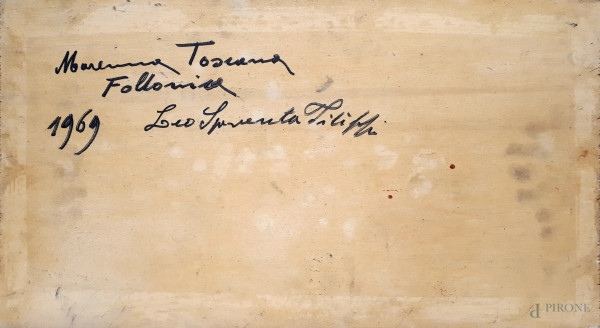 Maremma Toscana
Follonica
1969 Leo Spaventa Filippi
PIRONE